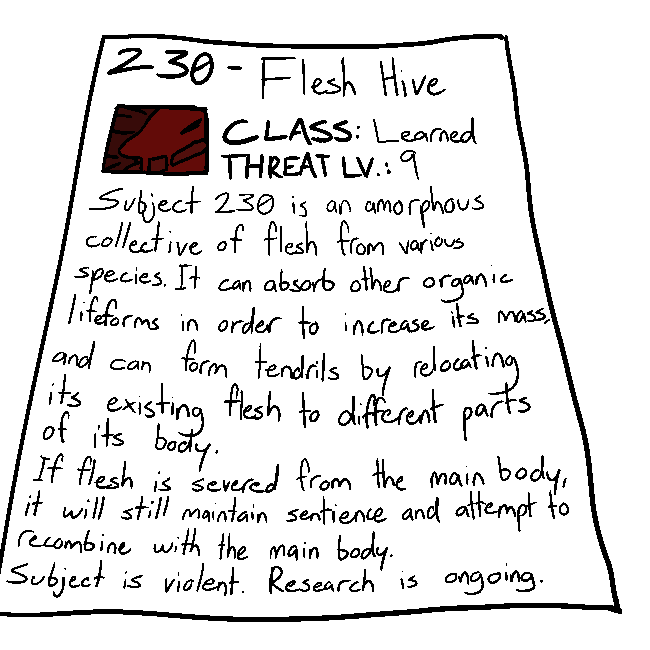 230 - Flesh Hive
CLASS: Learned
THREAT LV.: 9
Subject 230 is an amorphous
collective of flesh from various
species. It can absorb other organic
lifeforms in order to increase its mass,
and can form tendrils by relocating
its existing flesh to different parts
of its body.
If flesh is severed from the main body,
it will still maintain sentience and attempt to
recombine with the main body.
Subject is violent. Research is ongoing.